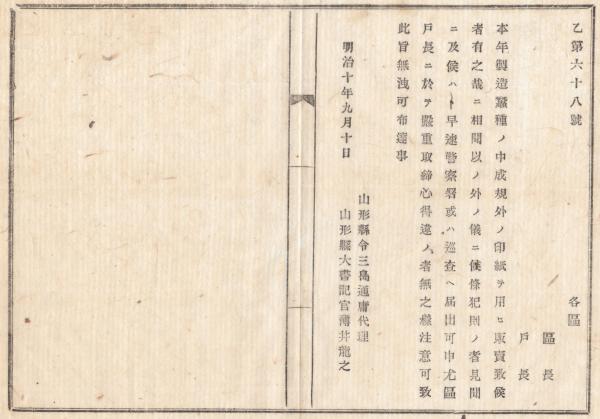 乙第六十八號
各區
區長
戸長
本年製造蠶種ノ中成規外ノ印紙ヲ用ヒ販賣致候
者有之哉ニ相聞以ノ外ノ儀ニ候條犯則ノ者見聞
ニ及候ハヽ早速警察署或ハ巡査ヘ届出可申尤區
戸長ニ於テ嚴重取締心得違ノ者無之樣注意可致
此旨無洩可布達事
明治十年九月十日
山形縣令三島通庸代理
山形縣大書記官薄井龍之